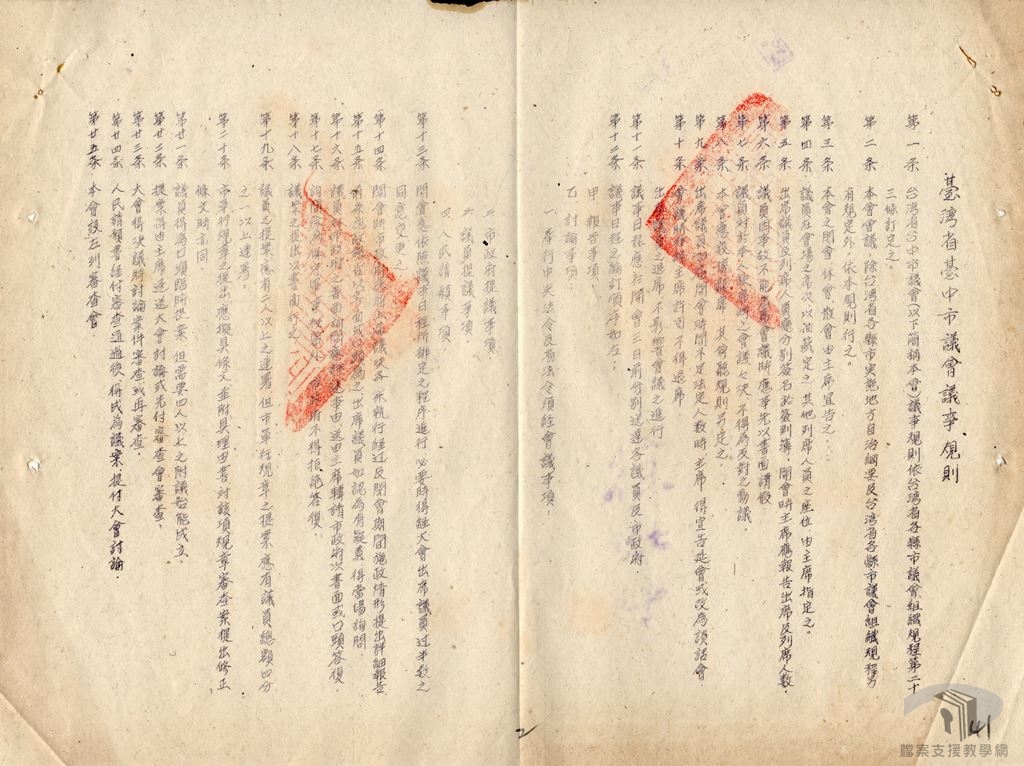 臺灣省臺中市議會議事規則
第一條 台灣省台中市議會(以下簡稱本會)議事規則依台灣省各縣市議會組織規程第二十
三條訂定之.
第二條 本會會議,除台灣省各縣市實施地方自治綱要及台灣省各縣市議會組織規程另
有規定外,依本規則行之.
第三條 本會之開會、休會、散會由主席宣告之.
第四條 議員在會場之席次以抽籤定之,其他列席人員之座位由主席指定之。
第五條 出席議員及列席人員應分別簽名於簽到簿,開會時主席應報告出席及列席人數.
第六條 議員因事故不能出席會議時應事先以書面請假
第七條 議員對於本人 之會議之決,不得為反對之動議.
第八條 本會應設旁聽席,其旁聽規則另定之.
第九條 出席議員 開會時間不足法定人數時,主席得宣告延會或改為談話會.
第十條 會議時非經主席許可不得退席
出席 之退席,不影響會議之進行.
第十一條 議事日程應於開會三日前分別送達各議員及市政府.
第十二條 議事日程之編訂順序如左:
甲、報告事項.
乙、討論事項.
一、奉行中央法令及省法令須經會議事項.
二、市政府提議事項.
三、議員提議事項.
四、人民請願事項.
第十三條 開會應依照議事日程所排定之程序進行,必要時得經大會出席議員過半數之
同意變更之.
第十四條 開會時市政府應將上屆會議議決各案執行經過及閉會期間施政情形提出詳細報告
第十五條 前條施政報告以書面或口頭為之,出席議員如認為有疑義,得當場詢問.
第十六條 議員對市政府之書面詢問應 事由送由主席轉請市政府以書面或口頭答復.
第十七條 詢問 市政府不得拒絕答復.
第十八條 議案之提出以書面行之.
第十九條 議員之提案應有二人以上之連署,但市單行規章之提案應有議員總額四分
之一以上連署。
第二十條 市單行規章之提出應擬具條文並附具理由書對該項規章審查案提出修正
條文時亦同
第廿一條 議員得為口頭臨時提案,但需要四人以上之附議始能成立.
第廿二條 提案得由主席逕送大會討論或先付審查會審查.
第廿三條 大會得決議將討論案件審查或再審查.
第廿四條 人民請願書經付審查通過後,得成為議案,提付大會討論.
第廿五條 本會設左列審查會
2
41
檔案支援教學網